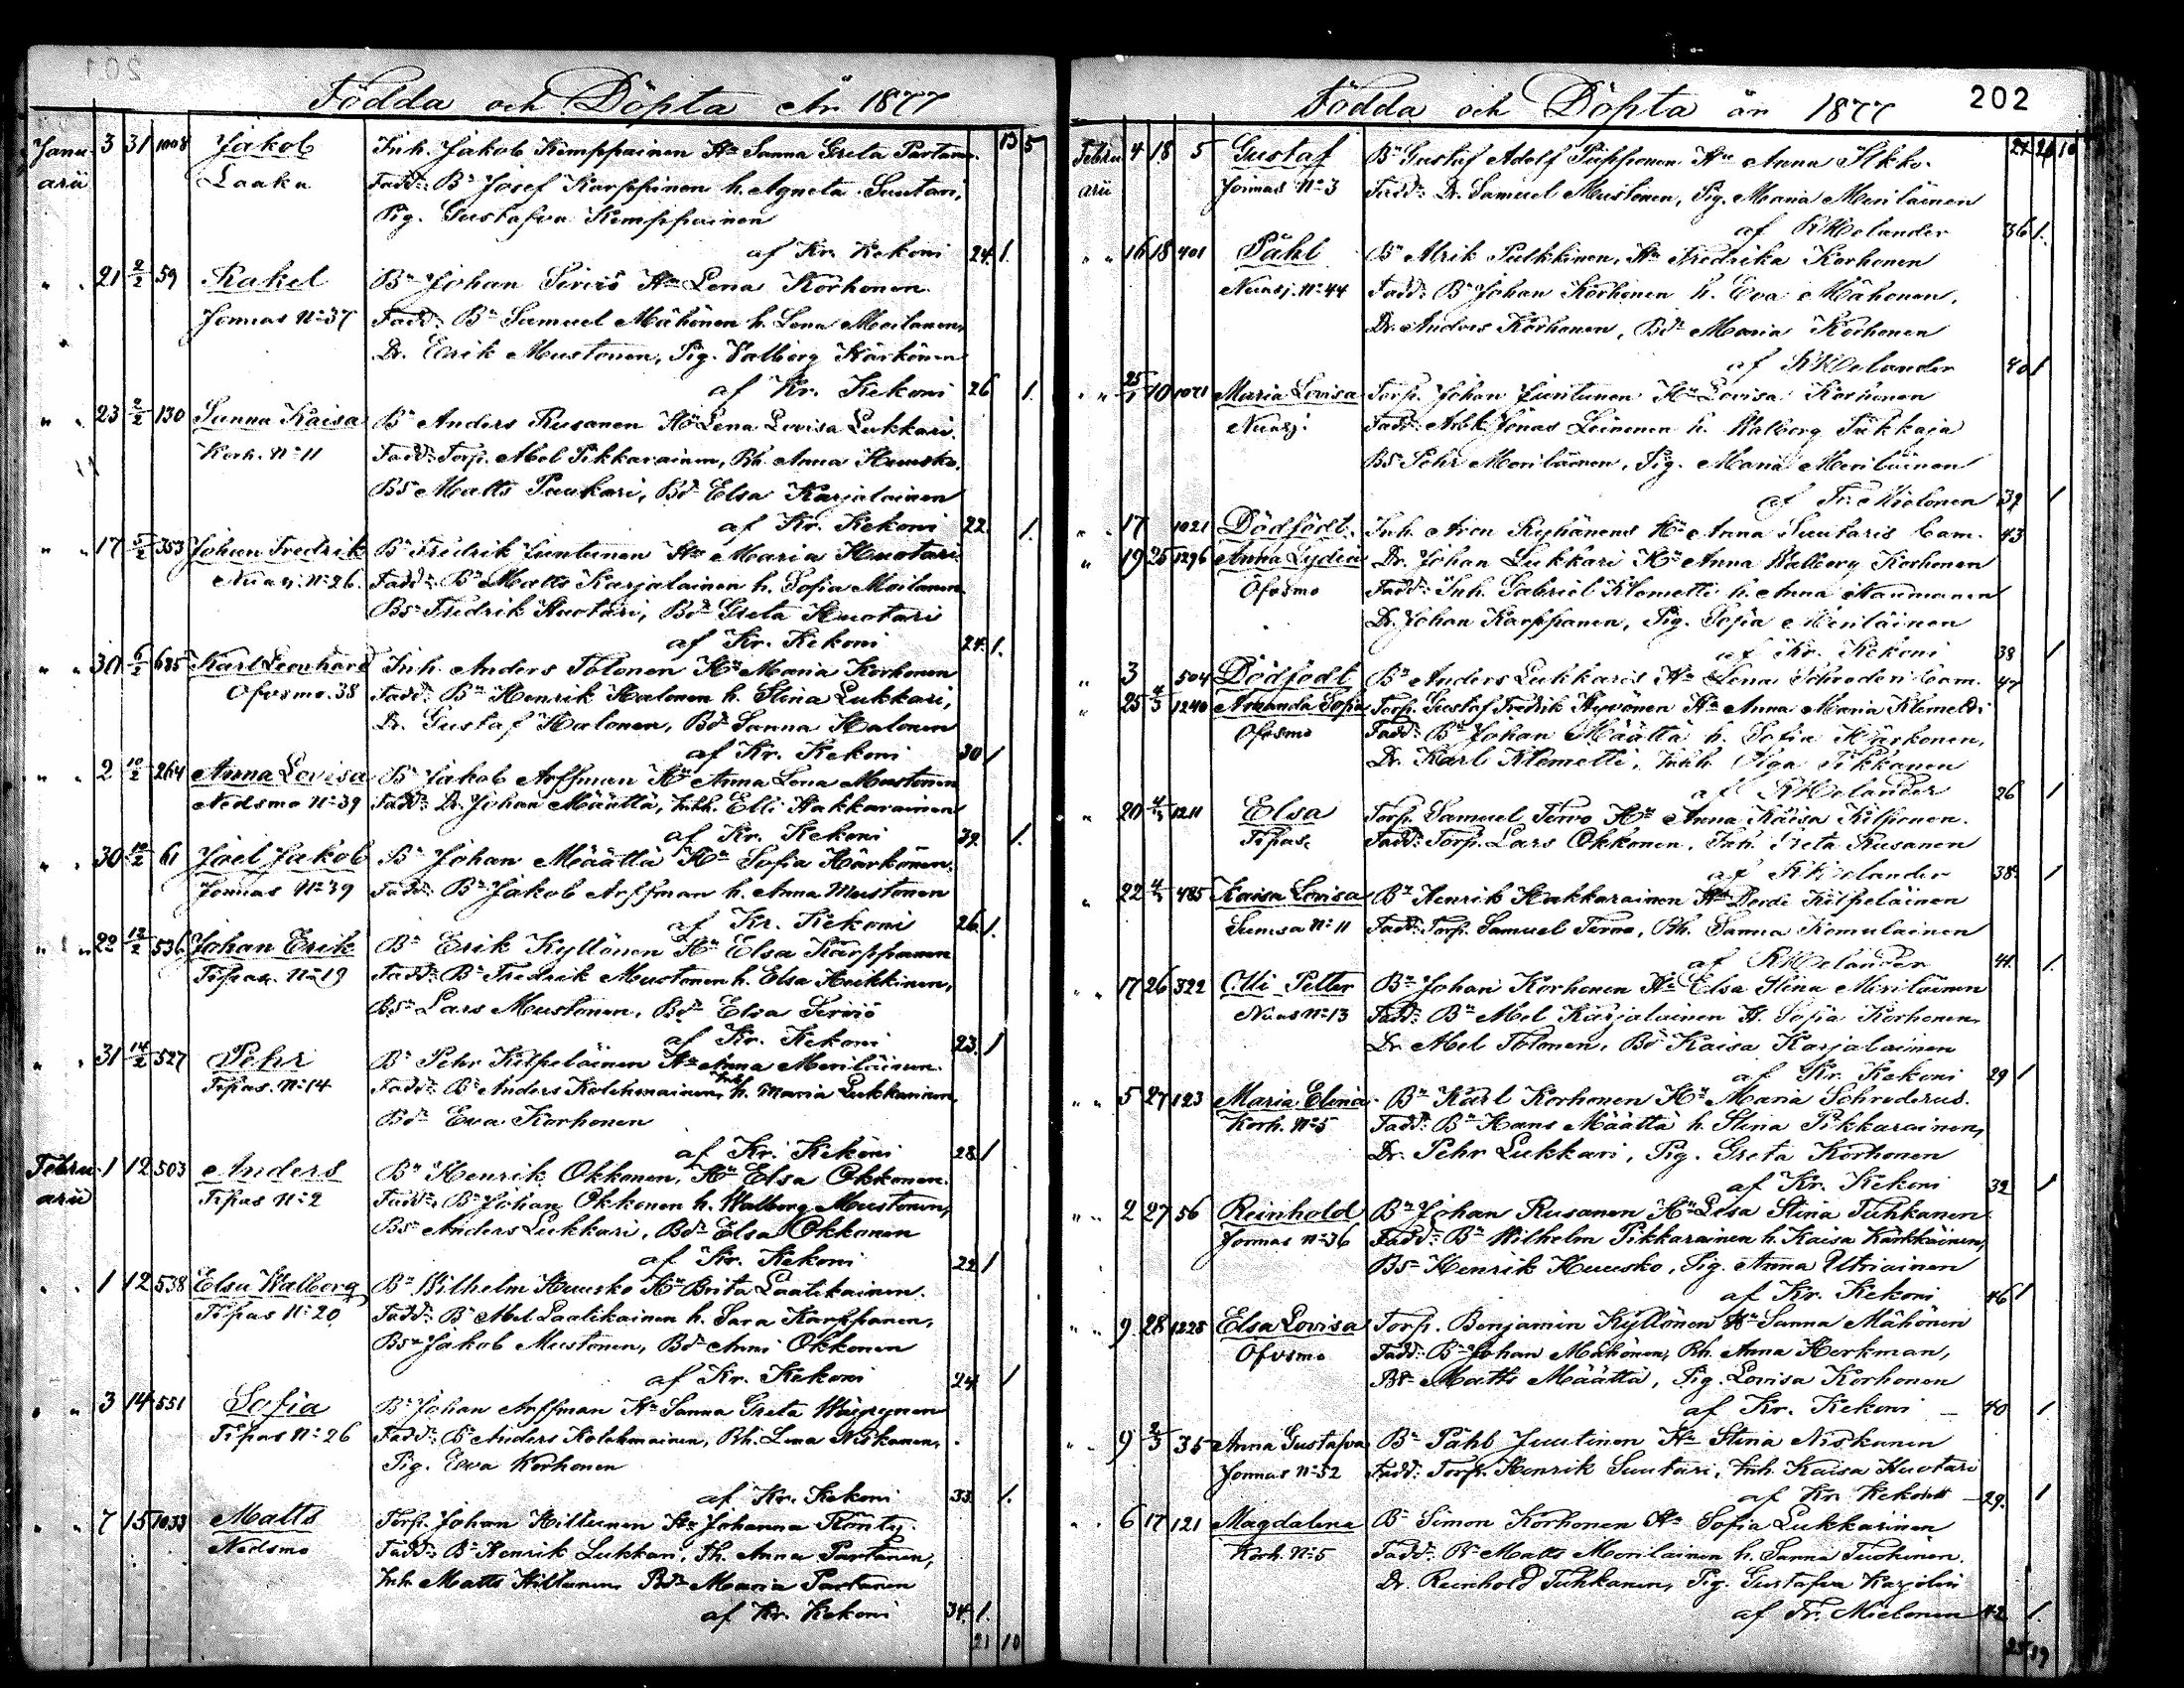 Födda och Döpta År 1877
Janu- 3 31 1008 Jakob Inh. Jakob Kemppainen Hu Sanna Greta Partanen 13 5
arii Laaka Fadd: Bn Josef Karppinen h. Agneta Suutari,
Pig. Gustafva Kemppainen
af Kr. Kekoni 24. 1.
" " 21 2/2 59 Rakel Bn Johan Serviö Hu Lena Korhonen
Jormas No 37 Fadd: Bn Samuel Mähönen h. Lena Moilanen,
Dr. Erik Mustonen, Pig. Valborg Härkönen
af Kr. Kekoni 26 1.
" " 23 2/2 130 Sanna Kaisa Bn Anders Rusanen Hu Lena Lovisa Lukkari.
Korh. No 11 Fadd: Torp. Abel Pikkarainen, Bh. Anna Huusko,
Bs Matts Puukari, Bd Elsa Karjalainen
af Kr. Kekoni 22 1.
" " 17 5/2 353 Johan Fredrik Bn Fredrik Juntunen Hu Maria Huotari
Nuasj. No 26. Fadd: Bn Matts Karjalainen h. Sofia Moilanen
Bs Fredrik Huotari, Bd Greta Huotari
af Kr. Kekoni 24. 1.
" " 30 6/2 685 Karl Leonhard Inh. Anders Tolonen Hu Maria Korhonen
Ofvsmo. 38 Fadd: Bn Henrik Halonen h. Stina Lukkari,
Dr. Gustaf Halonen, Bd Sanna Halonen
af Kr. Kekoni 30 1
" " 2 10/2 264 Anna Lovisa Bn Jakob Arffman Hu Anna Lena Mustonen
Nedsmo No 39 Fadd: Dr. Johan Määttä, Inhh. Elli Hakkarainen
af Kr. Kekoni 39. 1.
" " 30 12/2 61 Joel Jakob Bn Johan Määttä Hu Sofia Härkönen.
Jormas No 39 Fadd: Bn Jakob Arffman h. Anna Mustonen
af Kr. Kekoni 26. 1.
" " 22 12/2 536 Johan Erik Bn Erik Kyllönen Hu Elsa Karppanen
Tipas. No 19 Fadd: Bn Fredrik Mustonen h. Elsa Heikkinen,
Bs Lars Mustonen, Bd Elsa Serviö
af Kr. Kekoni 23. 1
" " 31 14/2 527 Pehr Bn Pehr Kilpeläinen Hu Anna Meriläinen.
Tipas. No 14 Fadd: Bn Anders Kolehmainen, h. Maria Lukkarinen,
Bd Eva Korhonen
af Kr. Kekoni 28. 1
Febru- 1 12 503 Anders Bn Henrik Okkonen, Hu Elsa Okkonen.
arii Tipas No 2 Fadd: Bn Johan Okkonen h. Walborg Mustonen,
Bs Anders Lukkari, Bd Elsa Okkonen
af Kr. Kekoni 22 1
" " 1 12 538 Elsa Walborg Bn Wilhelm Huusko Hu Brita Laatikainen.
Tipas No 20 Fadd: Bn Abel Laatikainen h. Sara Karppanen,
Bs Jakob Mustonen, Bd Anni Okkonen
af Kr. Kekoni 24 1
" " 3 14 551 Sofia Bn Johan Arffman Hu Sanna Greta Wäyrynen
Tipas No 26 Fadd: Bn Anders Kolehmainen, Bh. Lena Niskanen,
Pig. Eva Korhonen
af Kr. Kekoni 33. 1.
" " 7 15 1033 Matts Torp. Johan Hiltunen Hu Johanna Rönty.
Nedsmo Fadd: Bn Henrik Lukkari, Th. Anna Partanen,
Inh Matts Hiltunen, Bd Maria Partanen
af Kr. Kekoni 34. 1.
21 10
Födda och Döpta år 1877 202
Febru- 4 18 5 Gustaf Bn Gustaf Adolf Piipponen Hu Anna Ilkko.
arii Jormas No 3 Fadd: Dr. Samuel Mustonen, Pig. Maria Meriläinen
af KHelander 36 1.
" " 16 18 401 Påhl Bn Alrik Pulkkinen, Hu Fredrika Korhonen
Nuasj. No 44 Fadd: Bn Johan Korhonen h. Eva Mähönen,
Dr. Anders Korhonen, Bd Maria Korhonen
af KHelander 40 1
" " 25/1 10 1071 Maria Lovisa Torp. Johan Juntunen Hu Lovisa Korhonen
Nuasj. Fadd: Arbk Jonas Leinonen h. Walborg Tukkaja
Bs Pehr Meriläinen, Pig. Maria Meriläinen
af Fr. Mielonen 39 1
" " 17 1021 Dödfödt. Inh. Aron Ryhänens Hu Anna Suutaris barn. 43
" 19 25 1296 Anna Lydia Dr. Johan Lukkari Hu Anna Walborg Korhonen
Ofvsmo Fadd: Inh. Gabriel Klemetti h. Anna Naumanen
Dr. Johan Karppanen, Pig. Sofia Meriläinen
af Kr. Kekoni 38 1
" 3 504 Dödfödt Bn Anders Lukkaris Hu Lena Schroderi barn. 47
" 25 4/3 1240 Amanda Sofia Torp. Gustaf Fredrik Hyvönen Hu Anna Maria Klemetti
Ofvsmo Fadd: Bn Johan Määttä h. Sofia Härkönen,
Dr. Karl Klemetti, Inhh Olga Tikkanen
af KHelander 26 1
" 20 4/3 1211 Elsa Torp. Samuel Tervo Hu Anna Kaisa Kilponen.
Tipas. Fadd: Torp. Lars Okkonen, Inh. Greta Rusanen
af KHelander 38. 1
" 22 4/3 485 Kaisa Lovisa Bn Henrik Hakkarainen Hu Derdi Kilpeläinen
Sumsa No 11 Fadd: Torp. Samuel Tervo, Bh. Sanna Komulainen
af KHelander 41. 1.
" " 17 26 322 Olli Petter Bn Johan Korhonen Hu Elsa Stina Meriläinen
Nuas No 13 Fadd: Bn Abel Karjalainen H. Sofia Korhonen,
Dr. Abel Tolonen, Bd Kaisa Karjalainen
af Kr. Kekoni 29 1
" " 5 27 123 Maria Elina Bn Karl Korhonen Hu Maria Schroderus.
Korh. No 5 Fadd: Bn Hans Määttä h Stina Pikkarainen,
Dr. Pehr Lukkari, Pig. Greta Korhonen
af Kr. Kekoni 32 1
" " 2 27 56 Reinhold Bn Johan Rusanen Hu Lisa Stina Tuhkanen
Jormas No 36 Fadd: Bn Wilhelm Pikkarainen h. Kaisa Karkkainen,
Bs Henrik Huusko, Pig. Anna Utriainen
af Kr. Kekoni 46 1
" " 9 28 1225 Elsa Lovisa Torp. Benjamin Kyllönen Hu Sanna Mähönen
Ofvsmo Fadd: Bn Johan Mähönen, Bh. Anna Herkman,
Bs Matts Määttä, Pig. Lovisa Korhonen
af Kr. Kekoni 40 1
" " 9 2/3 35 Anna Gustafva Bn Påhl Juutinen Hu Stina Niskanen
Jormas No 52 Fadd: Torp. Henrik Suutari, Inh. Kaisa Huotari
af Kr. Kekoni 29. 1
" " 6 17 121 Magdalena Bn Simon Korhonen Hu Sofia Lukkarinen
Korh. No 5 Fadd: Bn Matts Meriläinen h. Sanna Tuohinen.
Dr. Reinhold Tuhkanen, Pig. Gustafva Karjolin
af Fr. Mielonen 42 1.
25 19